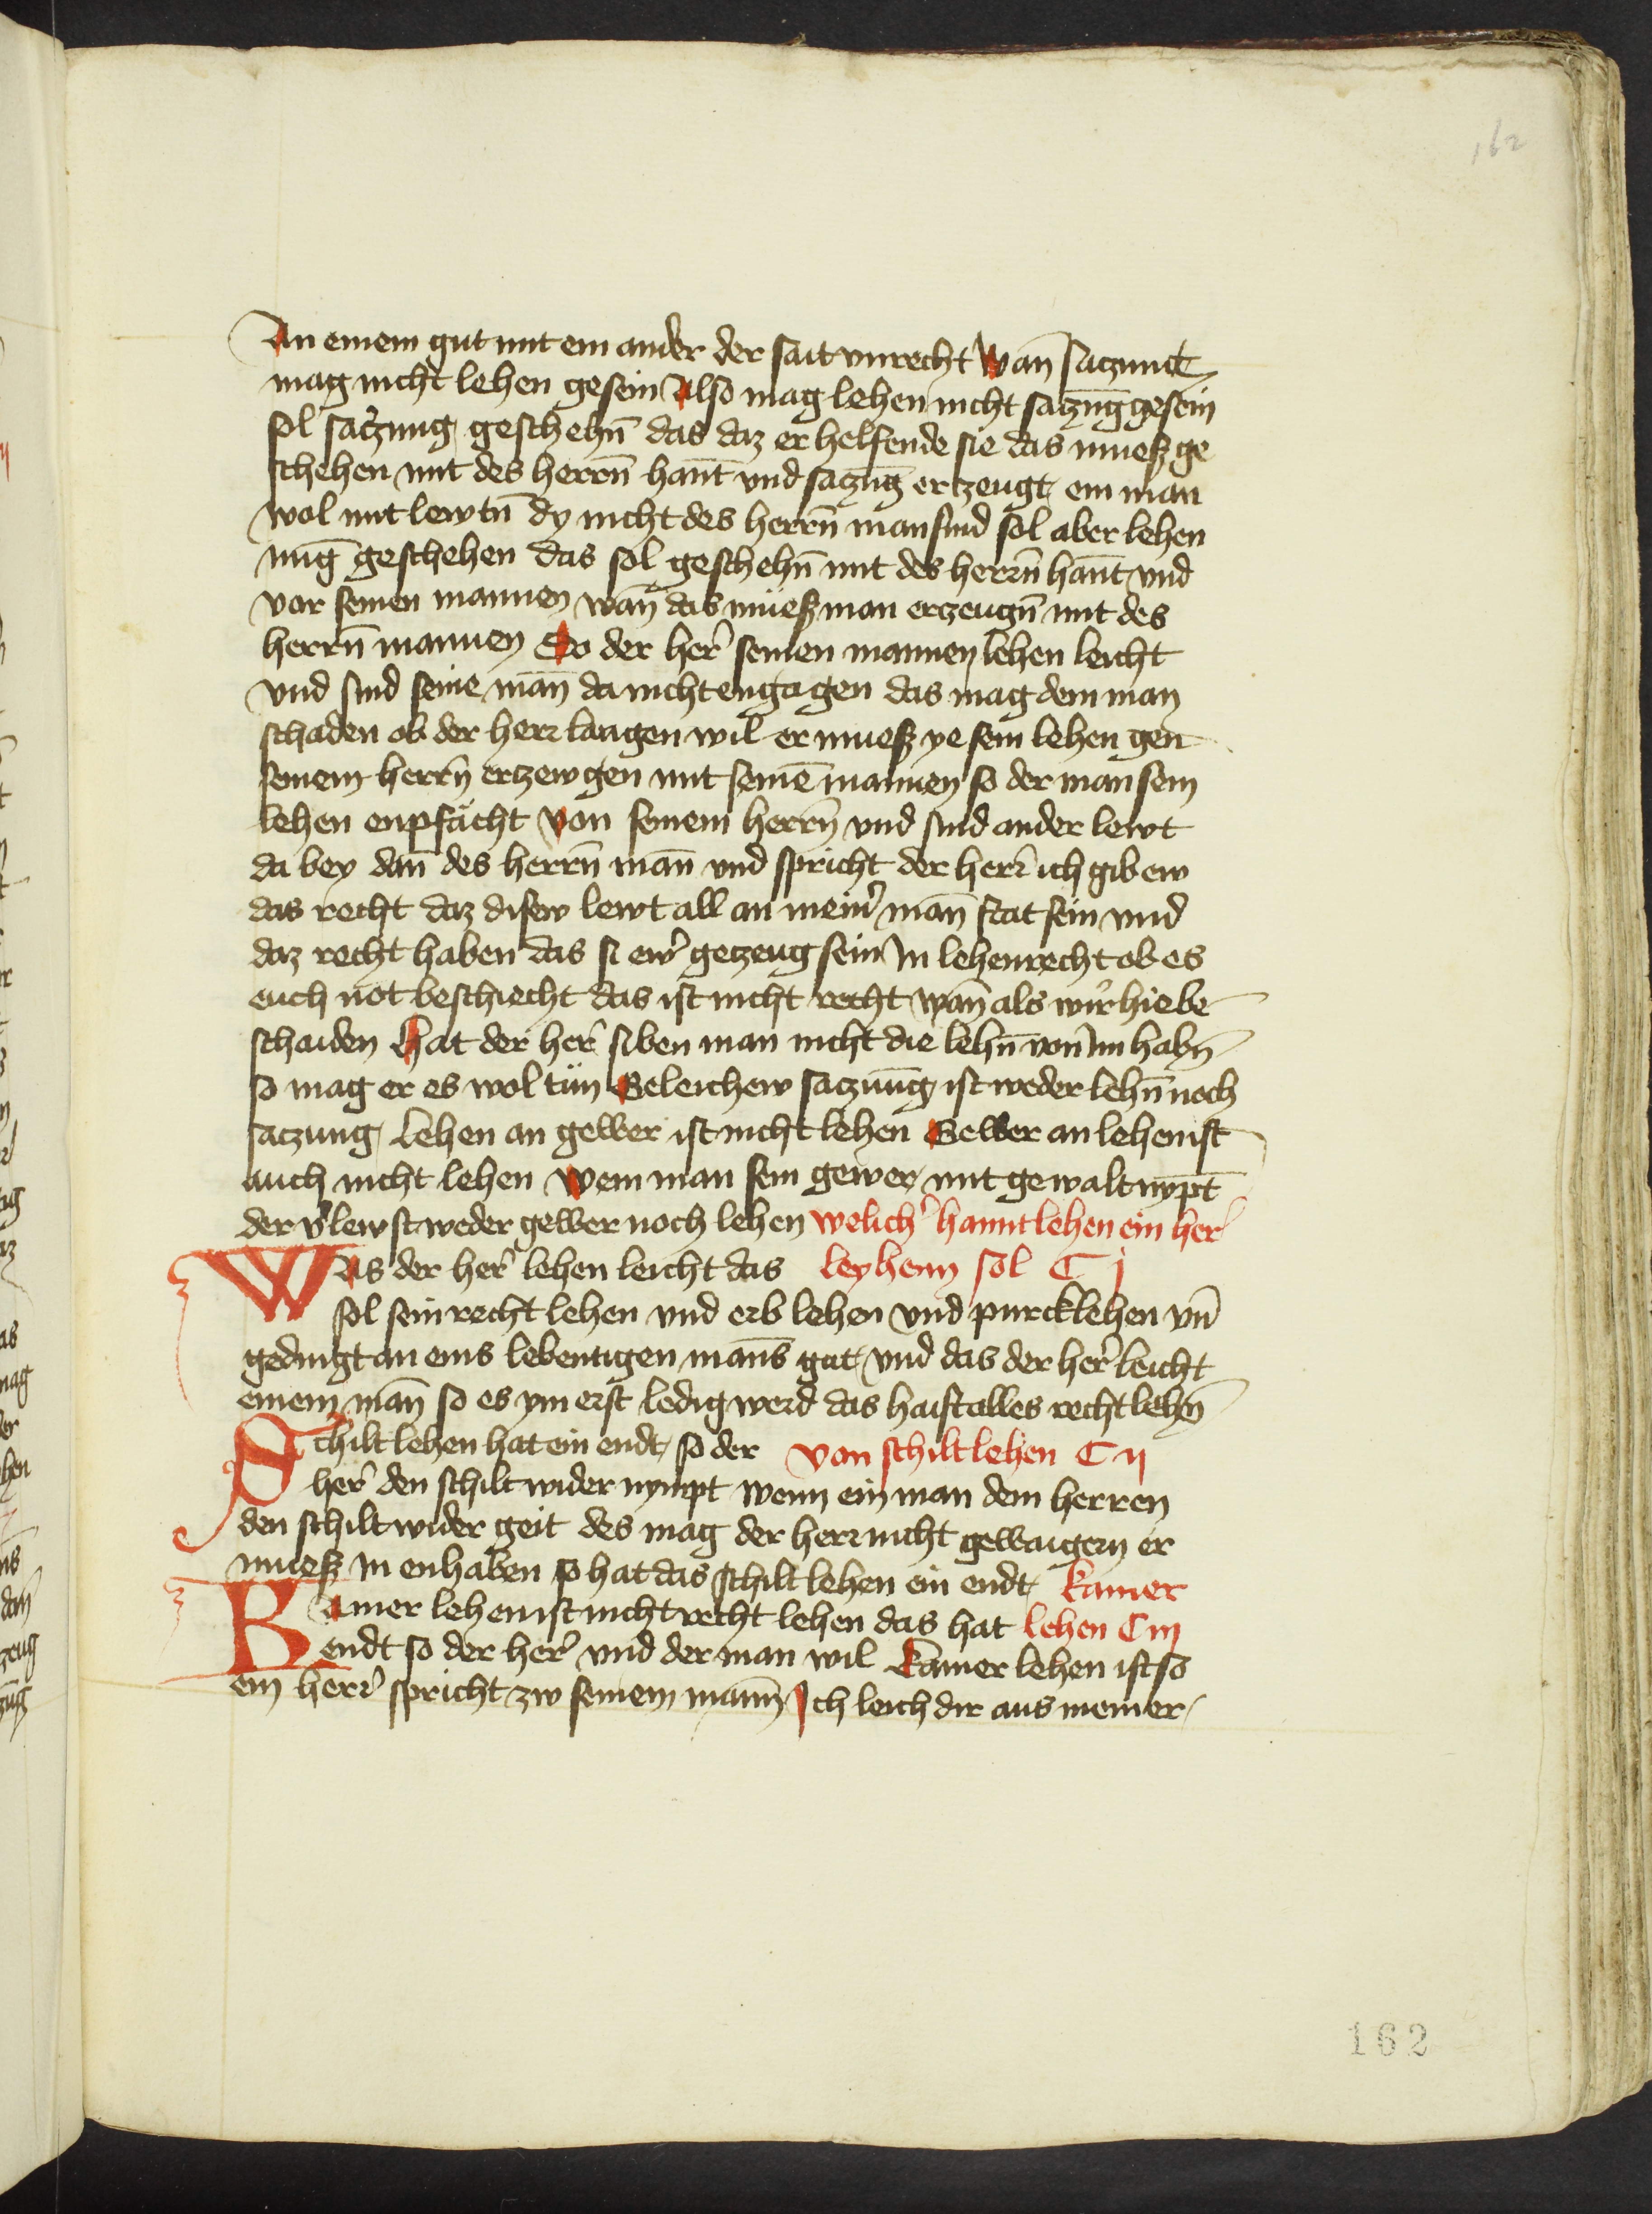 162
An einem gut mit ein ander der sait vnrecht Wan̄ saczunck
mag nicht lehen gesein Also mag lehen nicht saczūg gesein
sol saczung geschehn̄ das daz er helfende sie das muesz ge
schehen mit des herrn̄ han̄t vnd saczūg erzeugt ein man
wol mit lewtn̄ dy nicht des herrn̄ man sind sol aber lehen
nūg geschehen das sol geschehn̄ mit des herrn̄ han̄t vnd
vor seinen mannen wan̄ das müesz man erzeugn̄ mit des
herrn̄ mannen So der her̄ seinen mannen lehen leicht
vnd sind seine man̄ da nicht engagen das mag dem man
schaden ob der herr laugen wil er muesz ye sein lehen gen
seinem herrn̄ erzewgen mit seinē mannen so der man sein
lehen enpfächt von seinem herrn̄ vnd sind ander lewt
da bey dan̄ des herrn̄ man̄ vnd spricht der herr̄ ich gib ew
das recht daz disew lewt all an meinr̄ man̄ stat sein vnd
daz recht haben das si ewr̄ gezeug sein In lehenrecht ob es
euch not beschiecht das ist nicht recht wan̄ als wir hie be
schaiden Hat der her̄ siben man nicht die lehn̄ von im habn̄
so mag er es wol tün Geleichew saczūng ist weder lehn̄ noch
saczung Lehen an gewer ist nicht lehen Gewer an lehen ist
auch nicht lehen Wem man sein gewer mit gewalt nympt
der v̄lewst weder gewer noch lehen welich̄ hannt lehen ein her̄
Was der her̄ lehen leicht das leyhenn sol C j
sol sein recht lehen vnd erb lehen vnd purcklehen vn̄
gedingt an eins lebentigen man̄s gut vnd das der her̄ leicht
einem man̄ so es ym erst ledig werd das haist alles recht lehn̄
Schilt lehen hat ein endt so der von schilt lehen C ij
her̄ den schilt wider nympt wenn ein man dem herren
den schilt wider geit des mag der herr nicht gewaigern er
muesz in enhaben so hat das schilt lehen ein endt kamer
Kamer lehen ist nicht recht lehen das hat lehen C iij
endt so der her̄ vnd der man wil kamer lehen ist so
ein herr̄ spricht zw seinem mann̄ Ich leich dir aus meiner
162